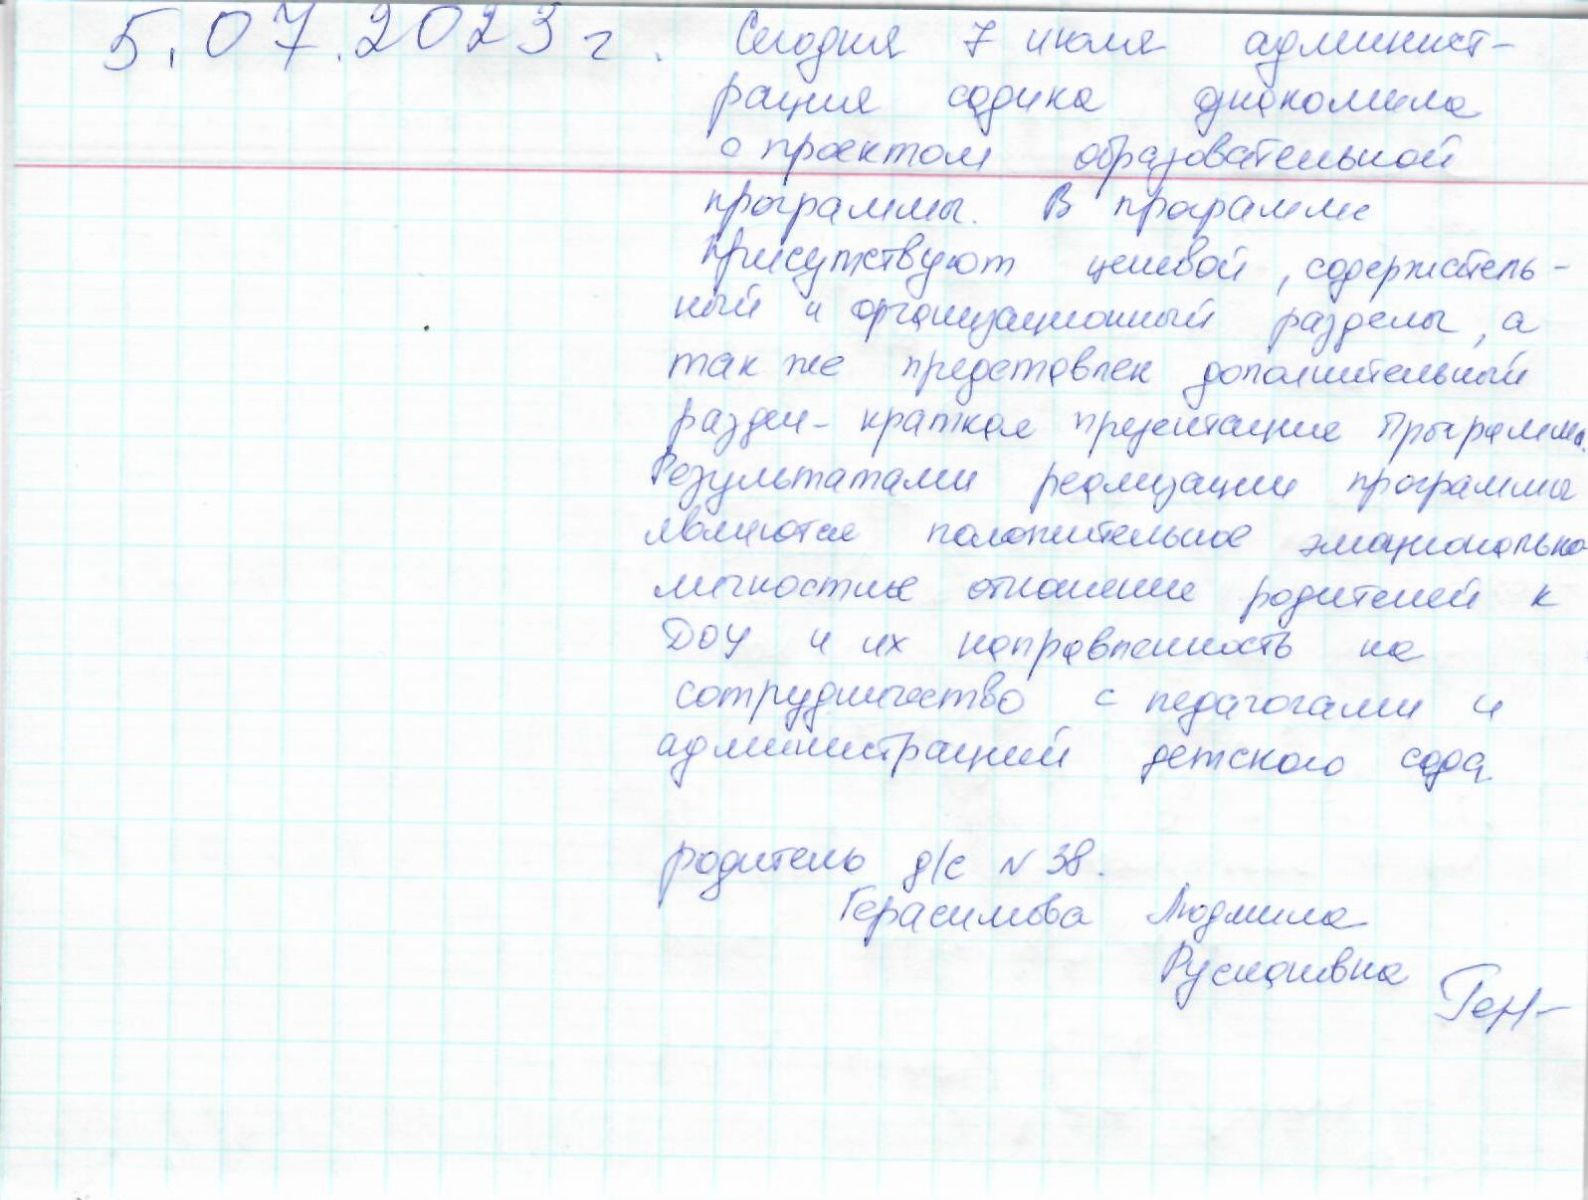 5.07.2023 г.
Сегодня 7 июля админист-
рация садика знакомила
с проектом образовательной
программы. В программе
присутствуют целевой, содержатель-
ный и организационный разделы, а
так же представлен дополнительный
раздел - краткая презентация Программы.
Результатами реализации программы
являются положительное эмоционально
личностные отношение родителей к
ДОУ и их направленность на
сотрудничество с педагогами и
администрацией детского сада
родитель д/с N 38.
Герасимова Людмила
Руслановна